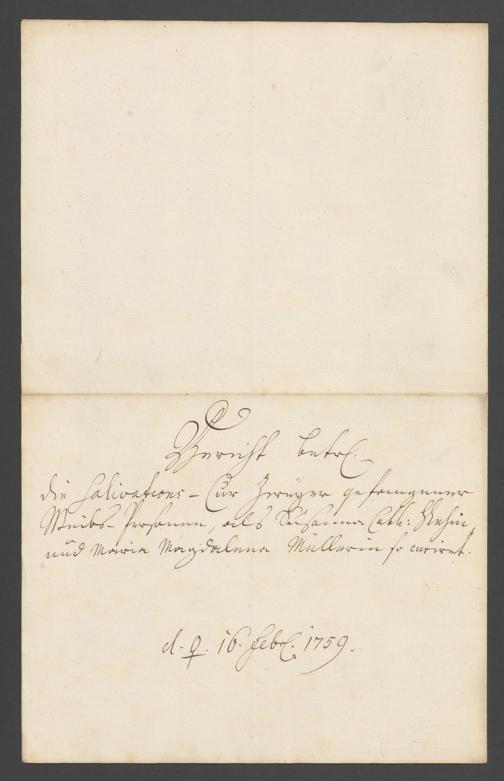 Bericht betrl.
die Salivations-Cur Zweyer gefangener
Weibs-Persohnen, als Susanna Cath:
und Maria Magdalena Müllerin so curiret.
d. ♀. 16. Febrl. 1759.